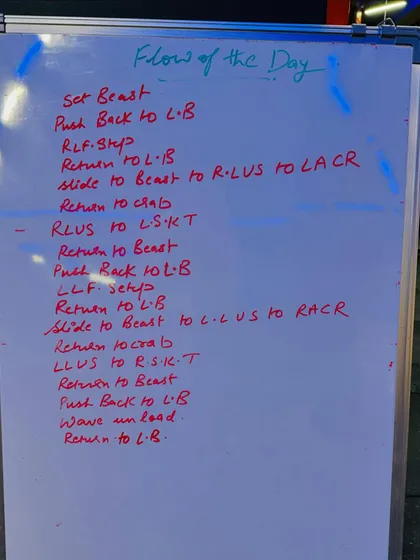 Flow of the Day
Set Beast
Push Back to L.B
RLF. Step
Return to L.B
Slide to Beast to R.LUS to LACR
Return to crab
- RLUS to L.S.K.T
Return to Beast
Push Back to L.B
LLF. Setp
Return to L.B
Slide to Beast to L.LUS to RACR
Return to crab
LLUS to R.S.K.T
Return to Beast
Push Back to L.B
Wave unload.
Return to L.B.